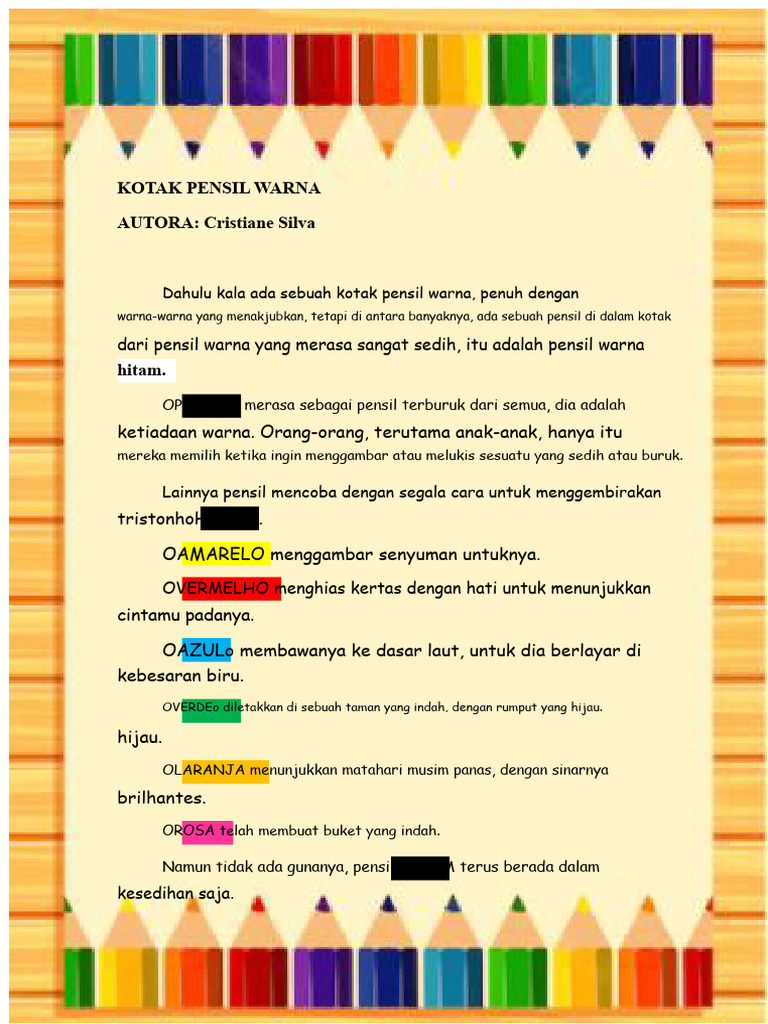 KOTAK PENSIL WARNA
AUTORA: Cristiane Silva
Dahulu kala ada sebuah kotak pensil warna, penuh dengan
warna-warna yang menakjubkan, tetapi di antara banyaknya, ada sebuah pensil di dalam kotak
dari pensil warna yang merasa sangat sedih, itu adalah pensil warna
hitam.
OP merasa sebagai pensil terburuk dari semua, dia adalah
ketiadaan warna. Orang-orang, terutama anak-anak, hanya itu
mereka memilih ketika ingin menggambar atau melukis sesuatu yang sedih atau buruk.
Lainnya pensil mencoba dengan segala cara untuk menggembirakan
.
OAMARELO menggambar senyuman untuknya.
OVERMELHO menghias kertas dengan hati untuk menunjukkan
cintamu padanya.
OAZULo membawanya ke dasar laut, untuk dia berlayar di
kebesaran biru.
OVERDEo diletakkan di sebuah taman yang indah, dengan rumput yang hijau.
hijau.
OLARANJA menunjukkan matahari musim panas, dengan sinarnya
brilhantes.
OROSA telah membuat buket yang indah.
Namun tidak ada gunanya, pensi terus berada dalam
kesedihan saja.